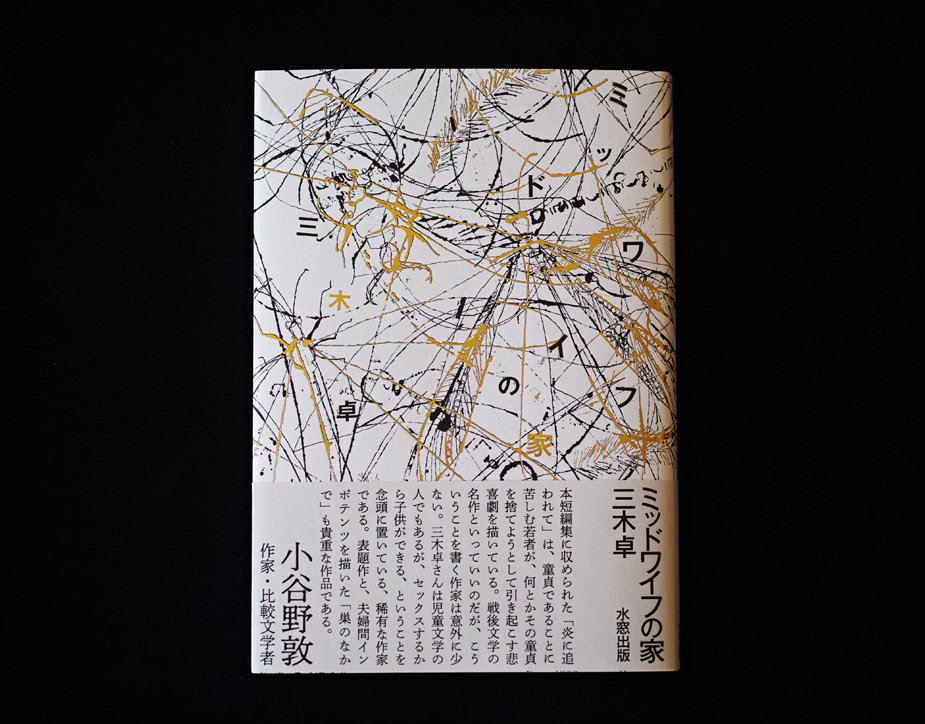 ミッドワイフの家
三木卓
ミッドワイフの家
三木卓
水窓出版
本短編集に収められた「炎に追
われて」は、童貞であることに
苦しむ若者が、何とかその童貞
を捨てようとして引き起こす悲
喜劇を描いている。戦後文学の
名作といっていいのだが、こう
いうことを書く作家は意外に少
ない。三木卓さんは児童文学の
人でもあるが、セックスするか
ら子供ができる、ということを
念頭に置いている、稀有な作家
である。表題作と、夫婦間イン
ポテンツを描いた「巣のなか
で」も貴重な作品である。
小谷野敦
作家・比較文学者